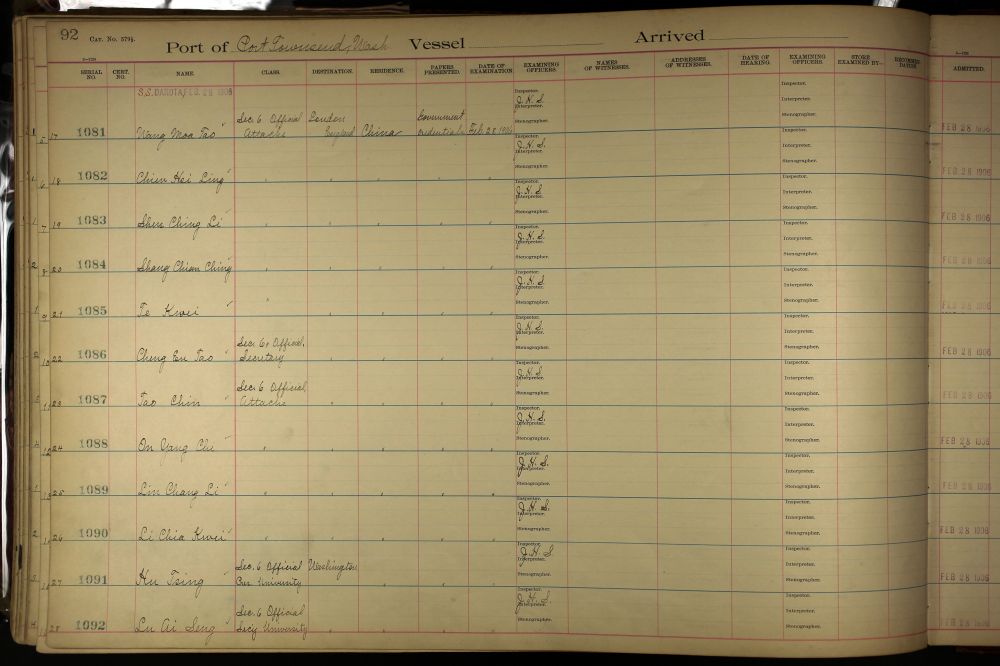 92 CAT. No. 579½. Port of Port Townsend, Wash Vessel Arrived
SERIAL NO. CERT. NO. NAME. CLASS. DESTINATION. RESIDENCE. PAPERS PRESENTED. DATE OF EXAMINATION. EXAMINING OFFICERS. NAMES OF WITNESSES. ADDRESSES OF WITNESSES. DATE OF HEARING. EXAMINING OFFICERS. STORE EXAMINED BY— ADMITTED.
S.S. DAKOTA, FEB. 28 1906
Inspector. Inspector.
J.H.S.
Interpreter. Interpreter.
Sec. 6 Official London Government Stenographer. Stenographer.
17 1081 Wang Moa Tao Attache England China credentials Feb. 28. 1906 FEB 28 1906
Inspector. Inspector.
J.H.S.
Interpreter. Interpreter.
Stenographer. Stenographer.
18 1082 Chien Hsi Ling " " " " FEB 28 1906
Inspector. Inspector.
J.H.S.
Interpreter. Interpreter.
Stenographer. Stenographer.
19 1083 Shen Ching Li " " " " FEB 28 1906
Inspector. Inspector.
J.H.S.
Interpreter. Interpreter.
Stenographer. Stenographer.
20 1084 Shang Chian Ching " " " " " FEB 28 1906
Inspector. Inspector.
J.H.S.
Interpreter. Interpreter.
Stenographer. Stenographer.
21 1085 Te Kwei " " " " " FEB 28 1906
Inspector. Inspector.
J.H.S.
Interpreter. Interpreter.
Sec. 6, Official. Stenographer. Stenographer.
22 1086 Cheng En Tao Secretary " " " " FEB 28 1906
Inspector. Inspector.
J.H.S.
Interpreter. Interpreter.
Sec. 6 Official Stenographer. Stenographer.
23 1087 Tao Chin Attache " " " " FEB 28 1906
Inspector. Inspector.
J.H.S.
Interpreter. Interpreter.
Stenographer. Stenographer.
24 1088 On Yang Chi " " " " " FEB 28 1906
Inspector. Inspector.
J.H.S.
Interpreter. Interpreter.
Stenographer. Stenographer.
25 1089 Lin Chang Li " " " " " FEB 28 1906
Inspector. Inspector.
J.H.S.
Interpreter. Interpreter.
Stenographer. Stenographer.
26 1090 Li Chia Kwei " " " " " FEB 28 1906
Inspector. Inspector.
J.H.S.
Interpreter. Interpreter.
Sec. 6 Official Washington Stenographer. Stenographer.
27 1091 Hu Tsing University " " " FEB 28 1906
Inspector. Inspector.
J.H.S.
Interpreter. Interpreter.
Sec. 6 Official Stenographer. Stenographer.
28 1092 Lu Ai Seng Sec'y University " " " " FEB 28 1906